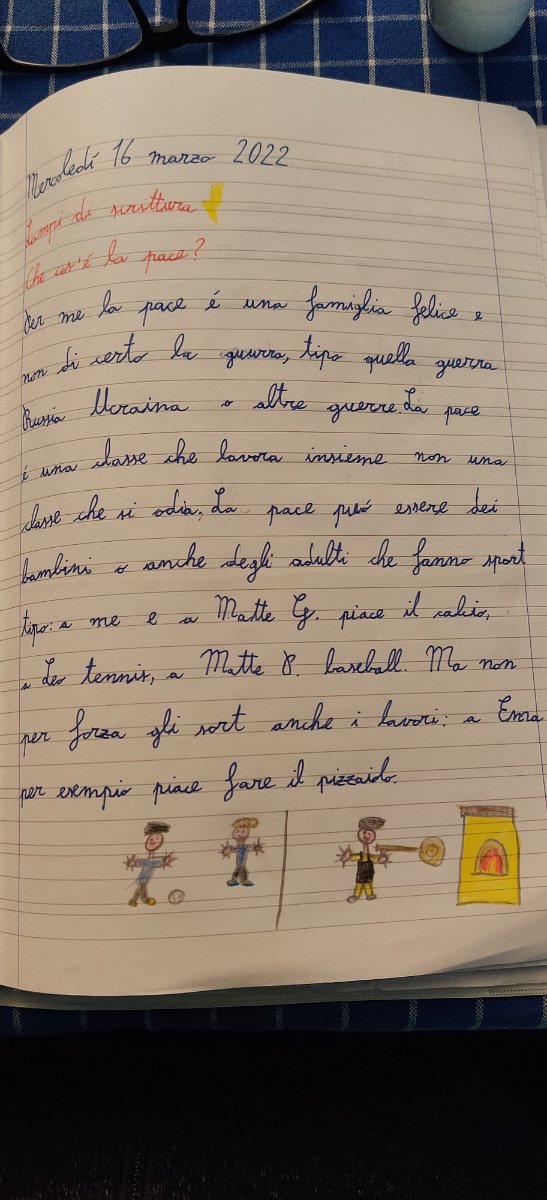 Mercoledí 16 marzo 2022
Lampi di scrittura
Che cos'é la pace?
Per me la pace é una famiglia felice e
non di certo la guurra, tipo quella guerra
Russia Ucraina o altre guerre. La pace
é una classe che lavora insieme non una
classe che si odia. La pace puó essere dei
bambini o anche degli adulti che fanno sport
tipo: a me e a Matte G. piace il calcio,
a Leo tennis, a Matte baseball. Ma non
per forza gli sort anche i lavori: a
per esempio piace fare il pizzaiolo.